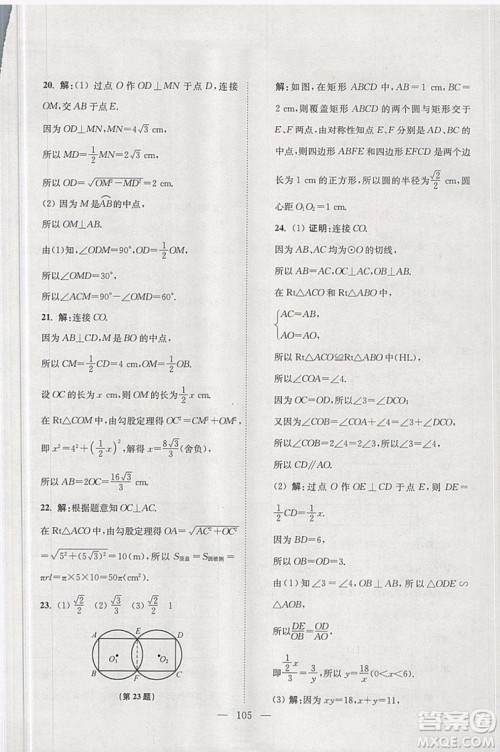 20. 解:(1) 过点 O 作 OD⊥MN 于点 D,连接
OM,交 AB 于点 E.
因为 OD⊥MN,MN=4√3 cm,
所以 MD=1/2 MN=2√3 cm.
所以 OD=√(OM²-MD²)=2 cm.
(2) 因为 M 是 AB 的中点,
所以 OM⊥AB.
由(1)知∠ODM=90°,OD=1/2 OM,
所以∠OMD=30°.
所以∠AMN=60°.
21. 解:连接 CO.
因为 AB⊥CD,M 是 CD 的中点,
所以 CM=1/2 CD=4,OM=1/2 OB=1/2 OC.
设 OC 的长为 x,则 OM 的长为 1/2 x.
在 Rt△COM 中,由勾股定理得 OC²=CM²+OM²,
即 x²=4²+(1/2 x)²,解得 x=8√3/3(舍负).
所以 AB=2OC=16√3/3 cm.
22. 解:根据题意知 OC⊥AC.
在 Rt△ACO 中,由勾股定理得 OA=√(AC²+OC²)
=√(5²+(5√3)²)=10(m),所以 S顶盖=S圆锥侧=
πrl=π×5×10=50π(m²).
23. (1) √2/2 (2) √3/3 (3) √2/2 1
A E D
O₁ O₂
B F C
(第 23 题)
解:如图,在矩形 ABCD 中,AB=1 cm,BC=2 cm,
则覆盖矩形 ABCD 的两个圆与矩形交于
E、F 两点,由对称性知点 E、F 分别是 AD、BC
的中点,则四边形 ABFE 和四边形 EFCD 是两个边
长为 1 cm 的正方形,所以圆的半径为 √2/2 cm,圆
心距 O₁O₂=1 cm.
24. (1) 证明:连接 CO.
因为 AC、AB 为⊙O 的切线,
所以∠ACO=∠ABO=90°.
在 Rt△ACO 和 Rt△ABO 中,
AC=AB,
AO=AO,
所以 Rt△ACO≌Rt△ABO(HL).
所以∠COA=∠4.
因为 CO=DO,所以∠3=∠DCO.
所以∠COB=2∠4=2∠3.所以∠4=∠3.
所以 CD∥AO.
(2) 解:过点 O 作 OE⊥CD 于点 E,则 DE=
1/2 CD=1/2 y.
因为 BD=6,
所以 DO=BO=3.
由(1)知∠4=∠3,所以△ODE∽
△AOB.
所以 DE/OB=OD/OA.
所以 (1/2 y)/3=3/x.所以 y=18/x(3<x<6).
(3) 解:因为 xy=18,x+y=11,
105